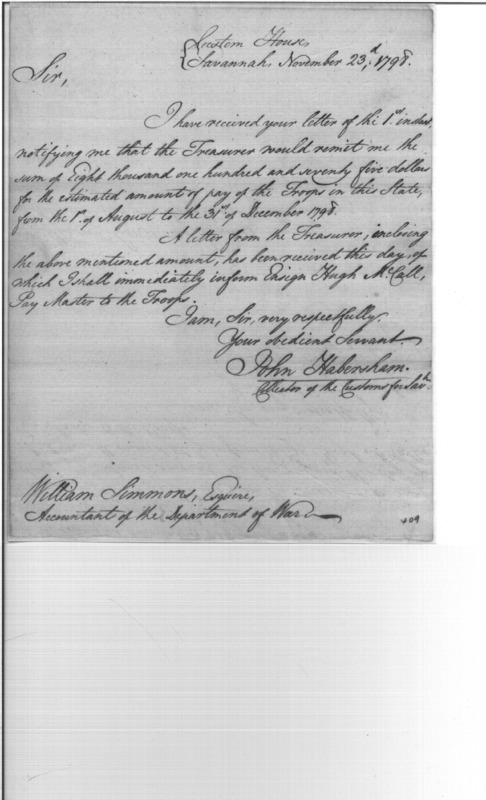 Custom House,
Savannah, November 23d, 1798.
Sir,
I have received your letter of the 1st instant,
notifying me that the Treasurer would remit me the
sum of Eight thousand one hundred and seventy five dollars
for the estimated amount of pay of the Troops in this State,
from the 1st of August to the 31st of December 1798.
A letter from the Treasurer, inclosing
the above mentioned amount, has been received this day, of
which I shall immediately inform Ensign Hugh McCall,
Pay Master to the Troops.
I am, Sir, very respectfully,
Your obedient Servant
John Habersham.
Collector of the Customs for Savh.
William Simmons, Esquire,
Accountant of the Department of War
409